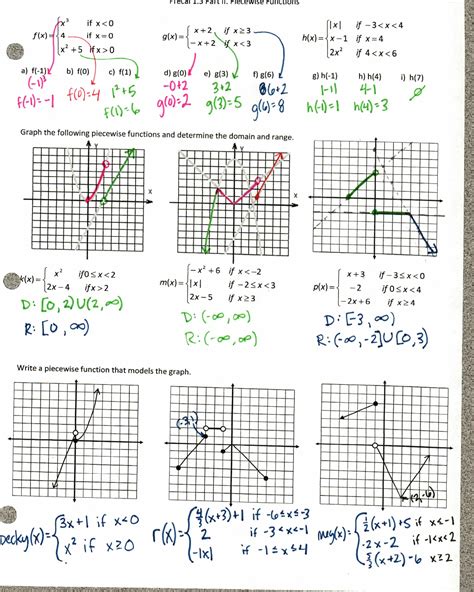 Precal 1.3 Part II: Piecewise Functions
f(x)= { x³ if x<0
4 if x=0
x²+5 if x>0
g(x)= { x+2 if x≥3
-x+2 if x<3
h(x)= { |x| if -3<x<4
x-1 if x=4
2x² if 4<x<6
a) f(-1) b) f(0) c) f(1) d) g(0) e) g(3) f) g(6) g) h(-1) h) h(4) i) h(7)
(-1)³ f(0)=4 1²+5 -0+2 3+2 6+2 |-1| 4-1 ∅
f(-1)=-1 f(1)=6 g(0)=2 g(3)=5 g(6)=8 h(-1)=1 h(4)=3
Graph the following piecewise functions and determine the domain and range.
Y
X
Y
X
k(x)= { x² if 0≤x<2
2x-4 if x>2
m(x)= { -x²+6 if x<-2
|x| if -2≤x<3
2x-5 if x≥3
p(x)= { x+3 if -3≤x<0
-2 if 0≤x<4
-2x+6 if x≥4
D: [0,2)∪(2,∞)
R: [0,∞)
D: (-∞,∞)
R: (-∞,∞)
D: [-3,∞)
R: (-∞,-2]∪[0,3)
Write a piecewise function that models the graph.
(-3,1)
(2,-6)
becky(x)= { 3x+1 if x<0
x² if x≥0
r(x)= { 4/3(x+3)+1 if -6≤x≤-3
2 if -3<x<-1
-|x| if -1≤x≤4
meg(x)= { 1/2(x+1)+5 if x≤-1
-2x-2 if -1<x<2
5/3(x+2)-6 x≥2